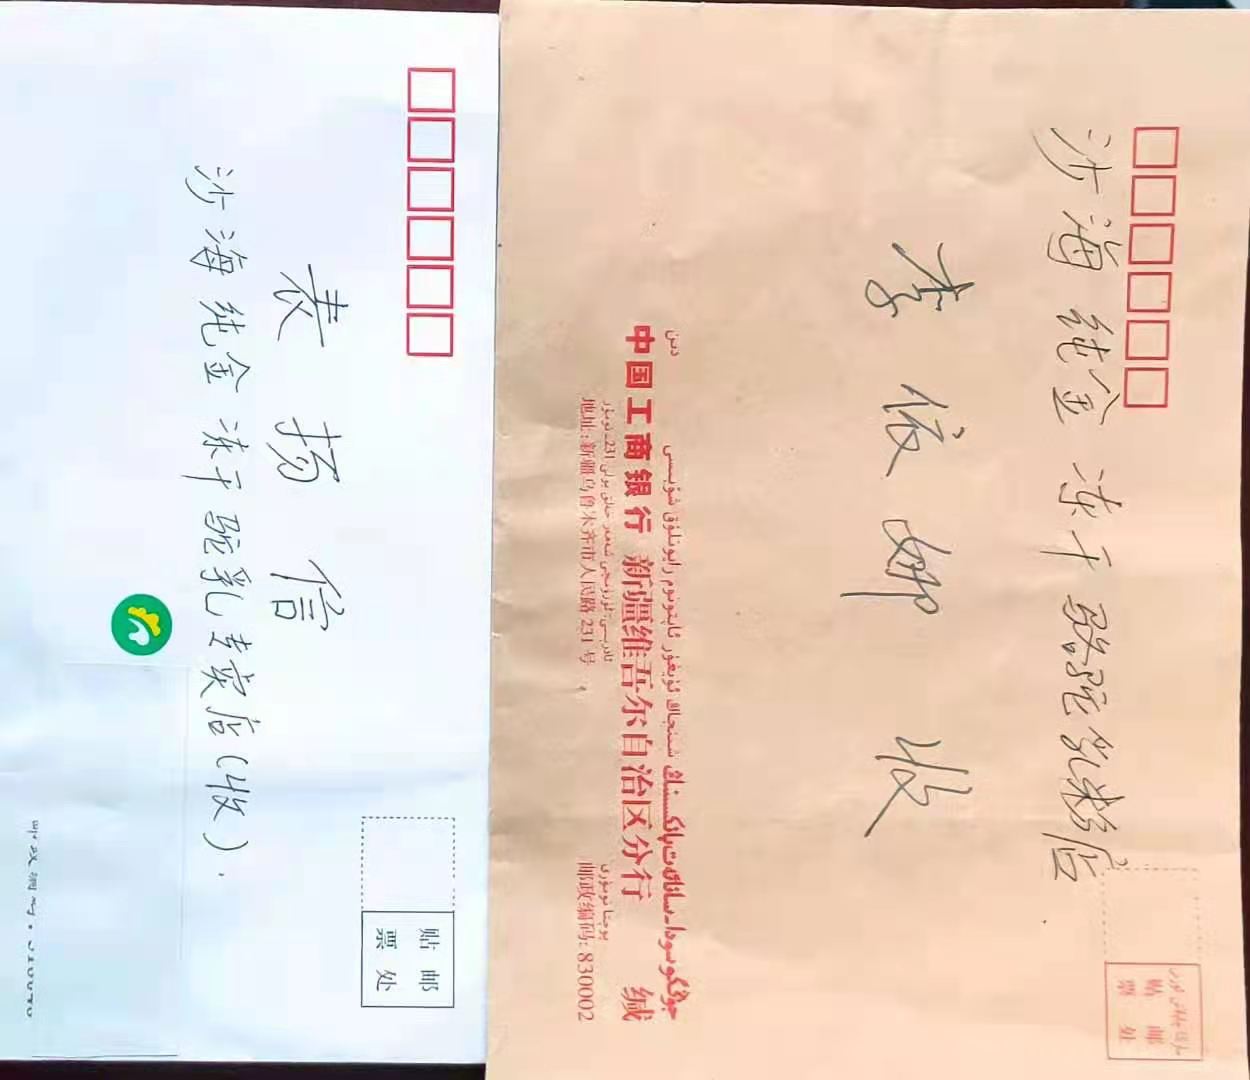 表扬信
沙海纯金冻干驼乳专卖店(收).
贴邮
票处
沙海纯金冻干骆驼乳粉店
李依娜 收
贴邮
票处
中国工商银行 新疆维吾尔自治区分行 缄
地址:新疆乌鲁木齐市人民路231号 邮政编码:830002